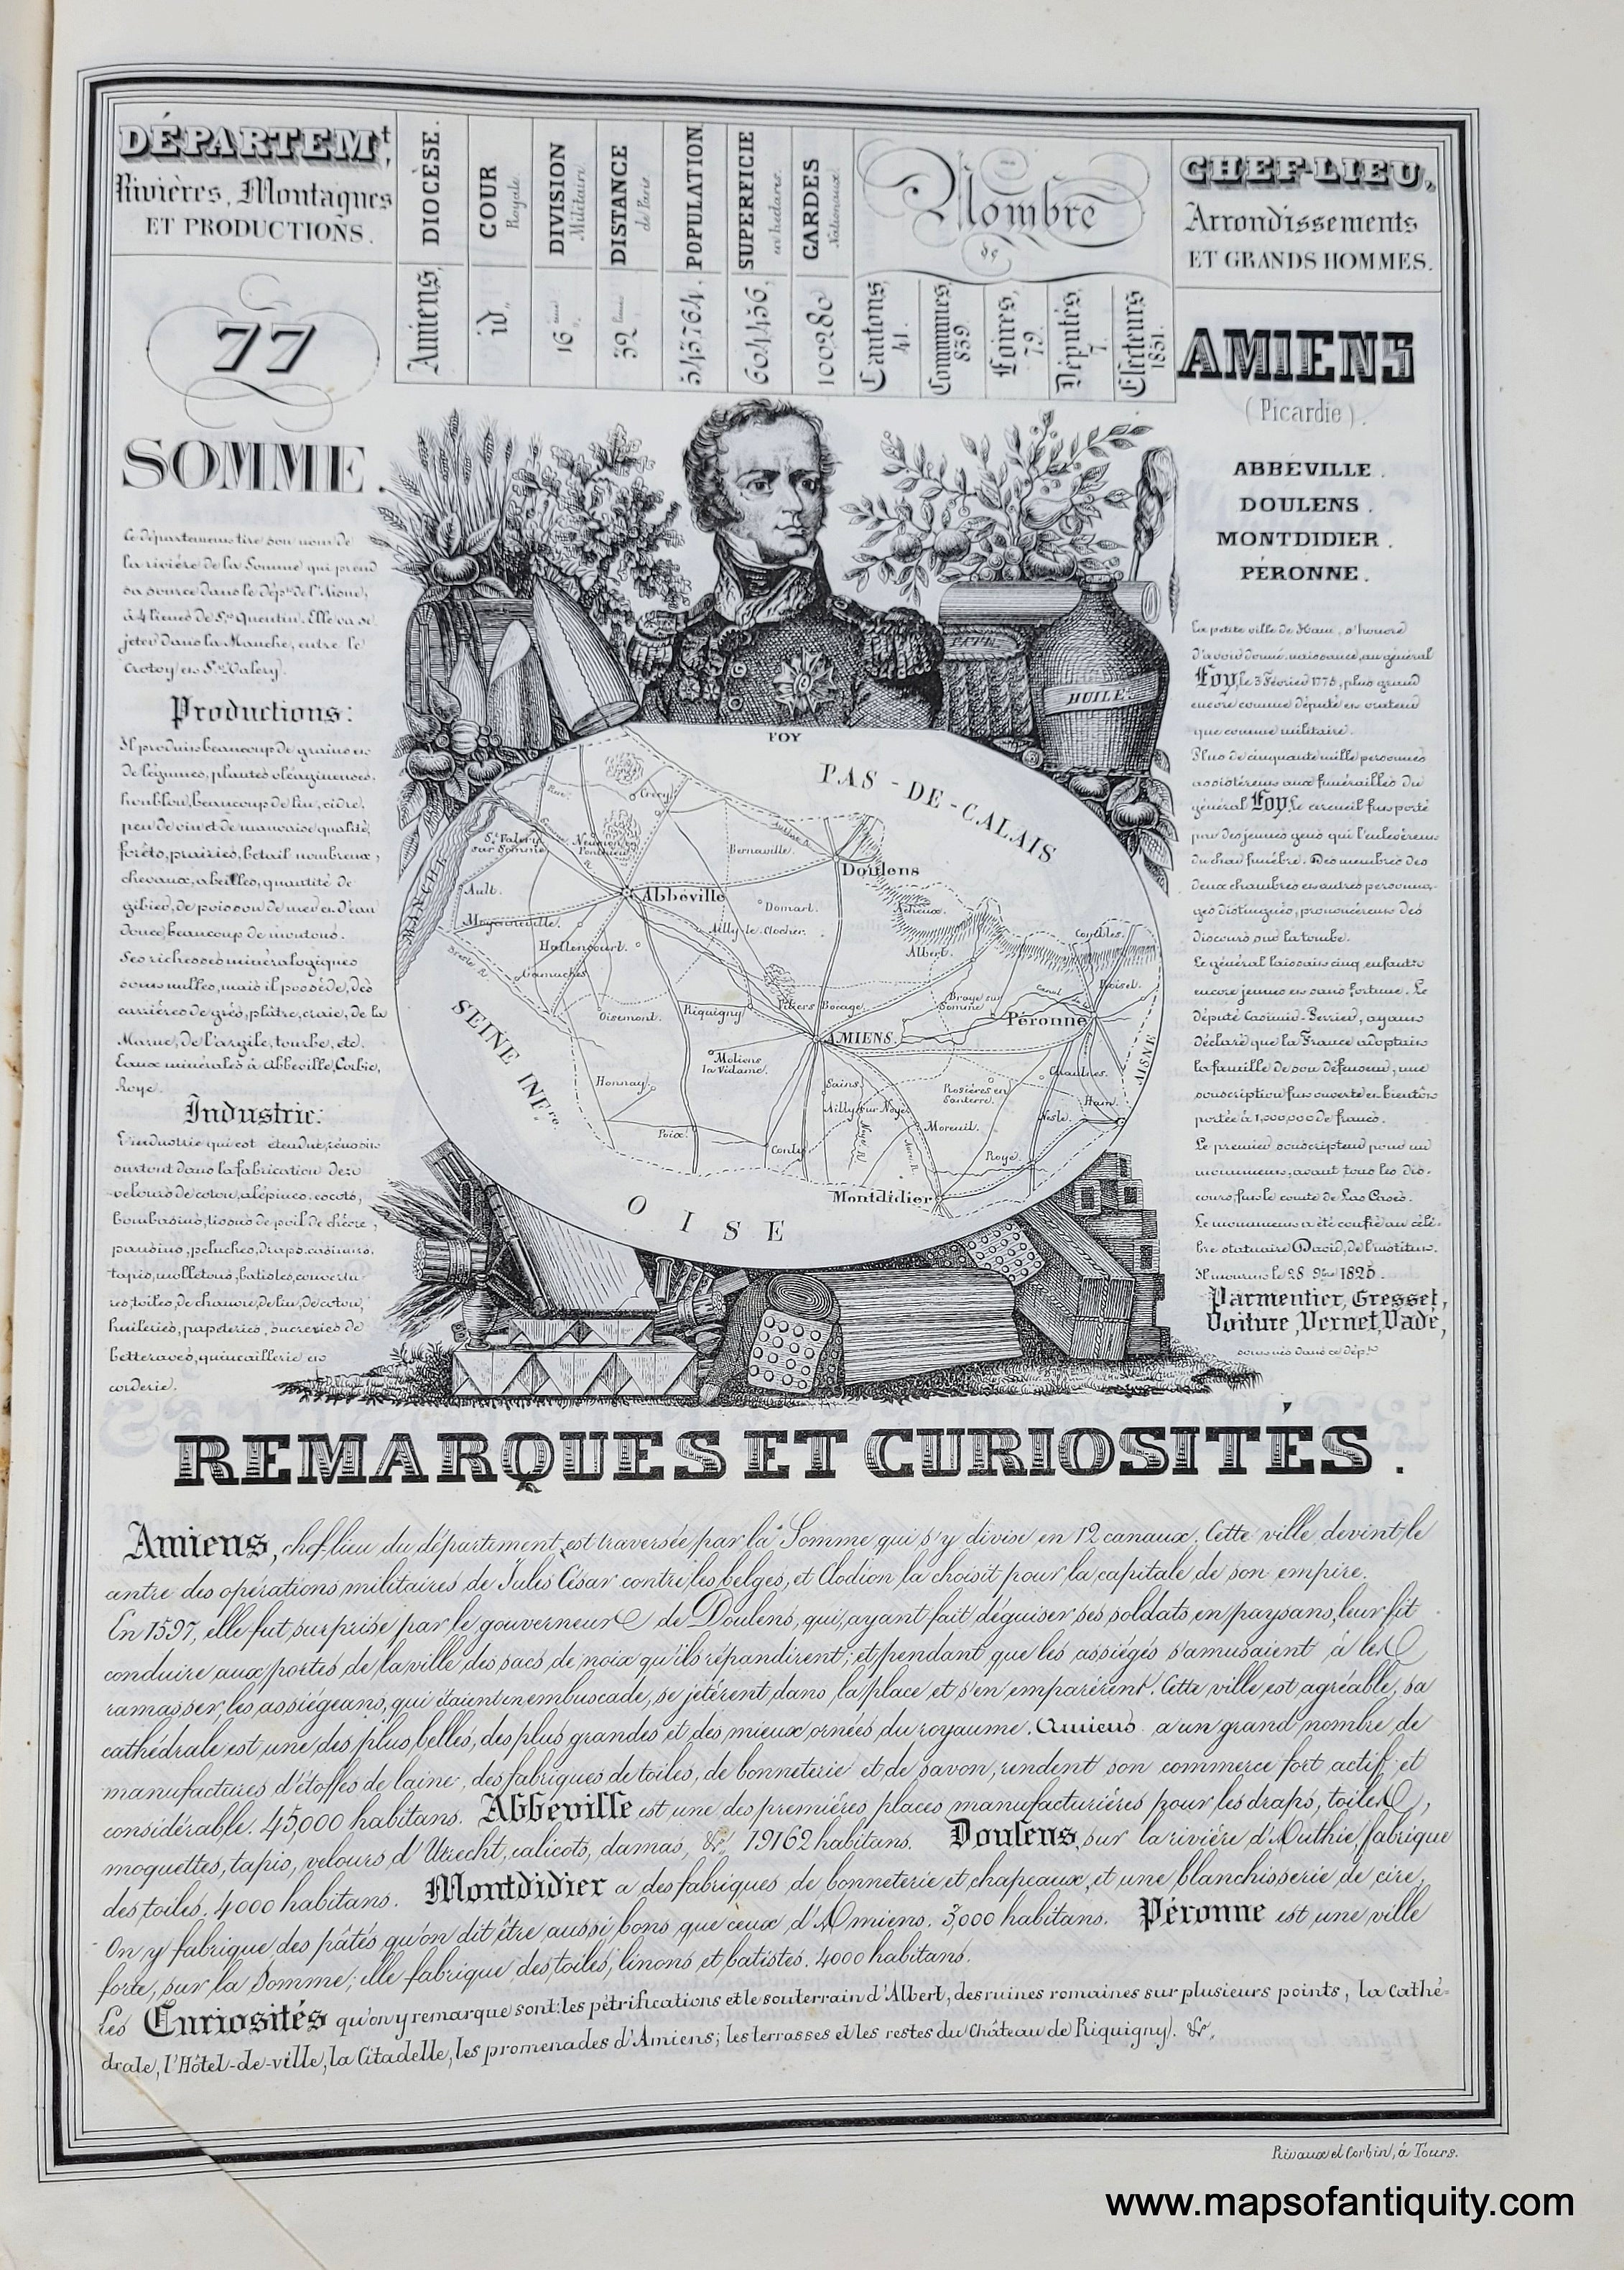 DÉPARTEMt,
Rivières, Montagnes
ET PRODUCTIONS.
DIOCÈSE.
Amiens,
COUR
Royale.
id.
DIVISION
Militaire.
16eme
DISTANCE
de Paris.
32 lieues
POPULATION
543764.
SUPERFICIE
en hectares.
604456,
GARDES
Nationaux.
100280
Nombre
de
Cantons,
41.
Communes,
839.
Foires,
79.
Députés,
7.
Electeurs
1851.
CHEF-LIEU,
Arrondissements
ET GRANDS HOMMES.
77
SOMME.
Ce département tire son nom de
la rivière de la Somme qui prend
sa source dans le dépt de l'Aisne,
à 4 lieues de St Quentin. Elle va se
jeter dans la Manche, entre le
Crotoy et St Valery.
Productions:
Il produit beaucoup de grains et
de légumes, plantes oléagineuses,
houblon, beaucoup de lin, cidre,
peu de vin et de mauvaise qualité,
forêts, prairies, bétail nombreux,
chevaux, abeilles, quantité de
gibier, de poisson de mer et d'eau
douce, beaucoup de moutons.
Ses richesses minéralogiques
sont nulles, mais il possède, des
carrières de grès, plâtre, craie, de la
Marne, de l'argile, tourbe, etc.
Eaux minérales à Abbeville, Corbie,
Roye.
Industrie:
L'industrie qui est étendue, consiste
surtout dans la fabrication des
velours de coton, alépines, escots,
bombasins, tissus de poil de chèvre,
pansins, peluches, draps, casimirs,
tapis, molletons, batistes, couvertu-
res, toiles, de chanvre, de lin, de coton,
huileries, papeteries, sucreries de
betteraves, quincaillerie et
corderie.
AMIENS
(Picardie).
ABBÉVILLE.
DOULENS.
MONTDIDIER.
PÉRONNE.
La petite ville de Ham, s'honore
d'avoir donné naissance, au général
Foy, le 3 Février 1775, plus grand
encore comme député et orateur
que comme militaire.
Plus de cinquante mille personnes
assistèrent aux funérailles du
général Foy, le cercueil fut porté
par des jeunes gens qui l'enlevèrent
du char funèbre. Des membres des
deux chambres et autres personna-
ges distingués, prononcèrent des
discours sur la tombe.
Le général laissait cinq enfants
encore jeunes et sans fortune. Le
député Casimir-Perrier, ayant
déclaré que la France adoptait
la famille de son défenseur, une
souscription fut ouverte et bientôt
portée à 1,000,000 de francs.
Le premier souscripteur pour un
monument, avant tous les dis-
cours fut le comte de Las Cases.
Le monument a été confié au célè-
bre statuaire David, de l'institut.
Il mourut le 28 9bre 1825.
Parmentier, Gresset,
Voiture, Vernet, Vadé,
sont nés dans ce dépt
HUILE
FOY
PAS-DE-CALAIS
MANCHE
SEINE INFre.
OISE
AISNE
Rue.
Crécy.
St Valery
sur Somme
Nouvion en
Ponthieu
Authie R.
Bernaville.
Doulens
Ault.
Abbéville
Domart.
Acheux.
Moyenneville.
Ailly-le-Clocher.
Hallencourt.
Combles.
Albert.
Bresle R.
Gamaches
Roisel.
Oisemont.
Piquigny
Villers Bocage.
Braye sur
Somme
Canal
Péronne
AMIENS.
Moliens
la Vidame.
Chaulnes.
Hornoy
Sains.
Rosières en
Santerre.
Ham.
Ailly sur Noye
Nesle.
Moreuil.
Poix.
Conty
Noye R.
Roye.
Montdidier
REMARQUES ET CURIOSITÉS.
Amiens, chef-lieu du département est traversée par la Somme qui s'y divise en 12 canaux. Cette ville devint le
centre des opérations militaires de Jules César contre les belges, et Clodion la choisit pour la capitale de son empire.
En 1597, elle fut surprise par le gouverneur de Doulens, qui, ayant fait déguiser ses soldats en paysans, leur fit
conduire aux portes de la ville des sacs de noix qu'ils répandirent; et pendant que les assiégés s'amusaient à les
ramasser, les assiégeans, qui étaient en embuscade, se jetèrent dans la place et s'en emparèrent. Cette ville est agréable, sa
cathédrale est une des plus belles, des plus grandes et des mieux ornées du royaume. Amiens a un grand nombre de
manufactures d'étoffes de laine, des fabriques de toiles, de bonneterie et de savon, rendent son commerce fort actif et
considérable. 45,000 habitans. Abbeville est une des premières places manufacturières pour les draps, toiles,
moquettes, tapis, velours d'Utrecht, calicots, damas, &c. 19162 habitans. Doulens, sur la rivière d'Authie, fabrique
des toiles. 4000 habitans. Montdidier a des fabriques de bonneterie et chapeaux, et une blanchisserie de cire.
On y fabrique des pâtés qu'on dit être aussi bons que ceux d'Amiens. 3,000 habitans. Péronne est une ville
forte, sur la Somme; elle fabrique des toiles, linons et batistes. 4000 habitans.
Les Curiosités qu'on y remarque sont: les pétrifications et le souterrain d'Albert, des ruines romaines sur plusieurs points, la Cathé-
drale, l'Hôtel-de-ville, la Citadelle, les promenades d'Amiens; les terrasses et les restes du Château de Piquigny. &c.
Rivaux et Corbin, à Tours.
www.mapsofantiquity.com